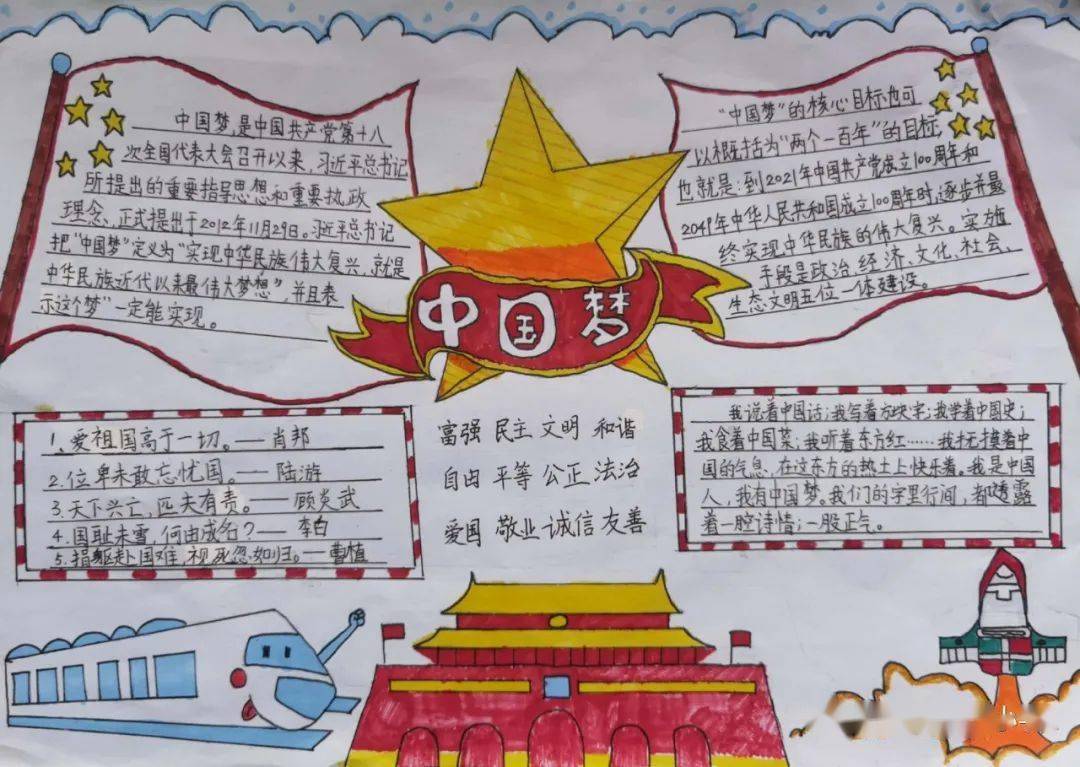 中国梦,是中国共产党第十八
次全国代表大会召开以来,习近平总书记
所提出的重要指导思想和重要执政
理念、正式提出于2012年11月29日。习近平总书记
把“中国梦”定义为“实现中华民族伟大复兴,就是
中华民族近代以来最伟大梦想”,并且表
示这个梦”一定能实现。
“中国梦”的核心目标也可
以概括为“两个一百年”的目标,
也就是:到2021年中国共产党成立100周年和
2049年中华人民共和国成立100周年时,逐步并最
终实现中华民族的伟大复兴。实施
手段是政治、经济、文化、社会、
生态文明五位一体建设。
中国梦
1、爱祖国高于一切。——肖邦
2.位卑未敢忘忧国。——陆游
3.天下兴亡,匹夫有责。——顾炎武
4.国耻未雪,何由成名?——李白
5.捐躯赴国难,视死忽如归。——曹植
富强 民主 文明 和谐
自由 平等 公正 法治
爱国 敬业 诚信 友善
我说着中国话;我写着方块字;我学着中国史;
我食着中国菜;我听着东方红……我抚摸着中
国的气息、在这东方的热土上快乐着。我是中国
人,我有中国梦。我们的字里行间,都透露
着一腔诗情;一股正气。